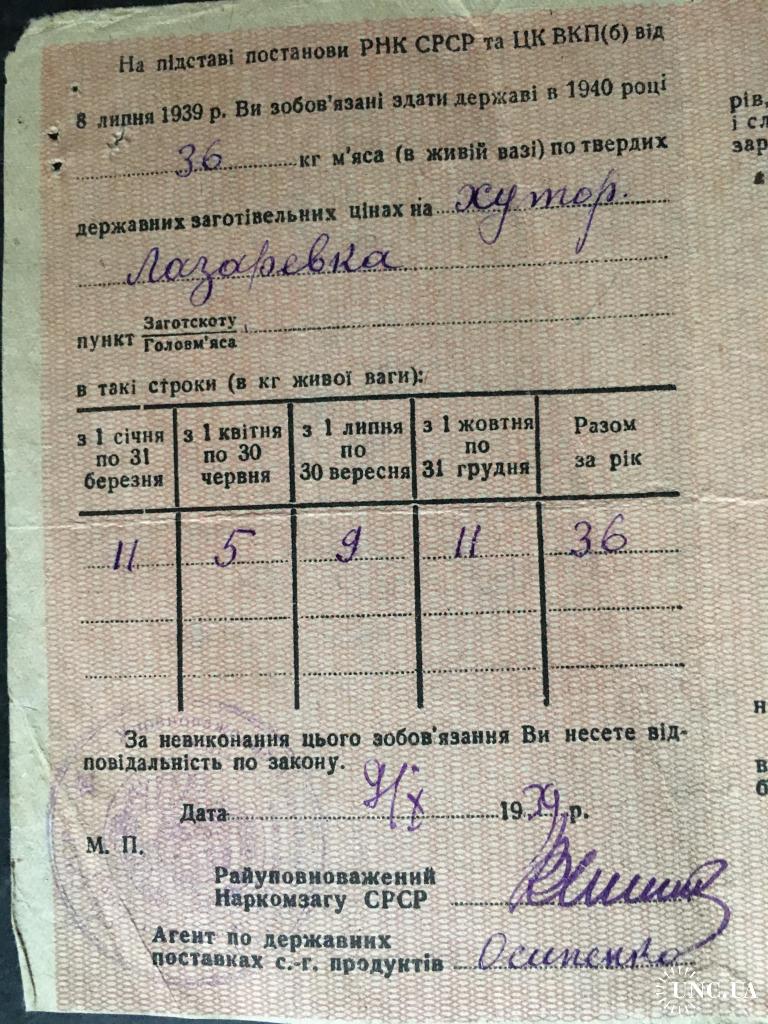 На підставі постанови РНК СРСР та ЦК ВКП(б) від
8 липня 1939 р. Ви зобов'язані здати державі в 1940 році
36 кг м'яса (в живій вазі) по твердих
державних заготівельних цінах на хутор.
Лазаревка
пункт Заготскоту
Головм'яса
в такі строки (в кг живої ваги):
з 1 січня по 31 березня з 1 квітня по 30 червня з 1 липня по 30 вересня з 1 жовтня по 31 грудня Разом за рік
11 5 9 11 36
За невиконання цього зобов'язання Ви несете від-
повідальність по закону.
Дата 9/X 1939 р.
М. П.
Райуповноважений
Наркомзагу СРСР
Агент по державних
поставках с.-г. продуктів Осипенко
рів,
і сл
зар
н
в
б
UNC.UA